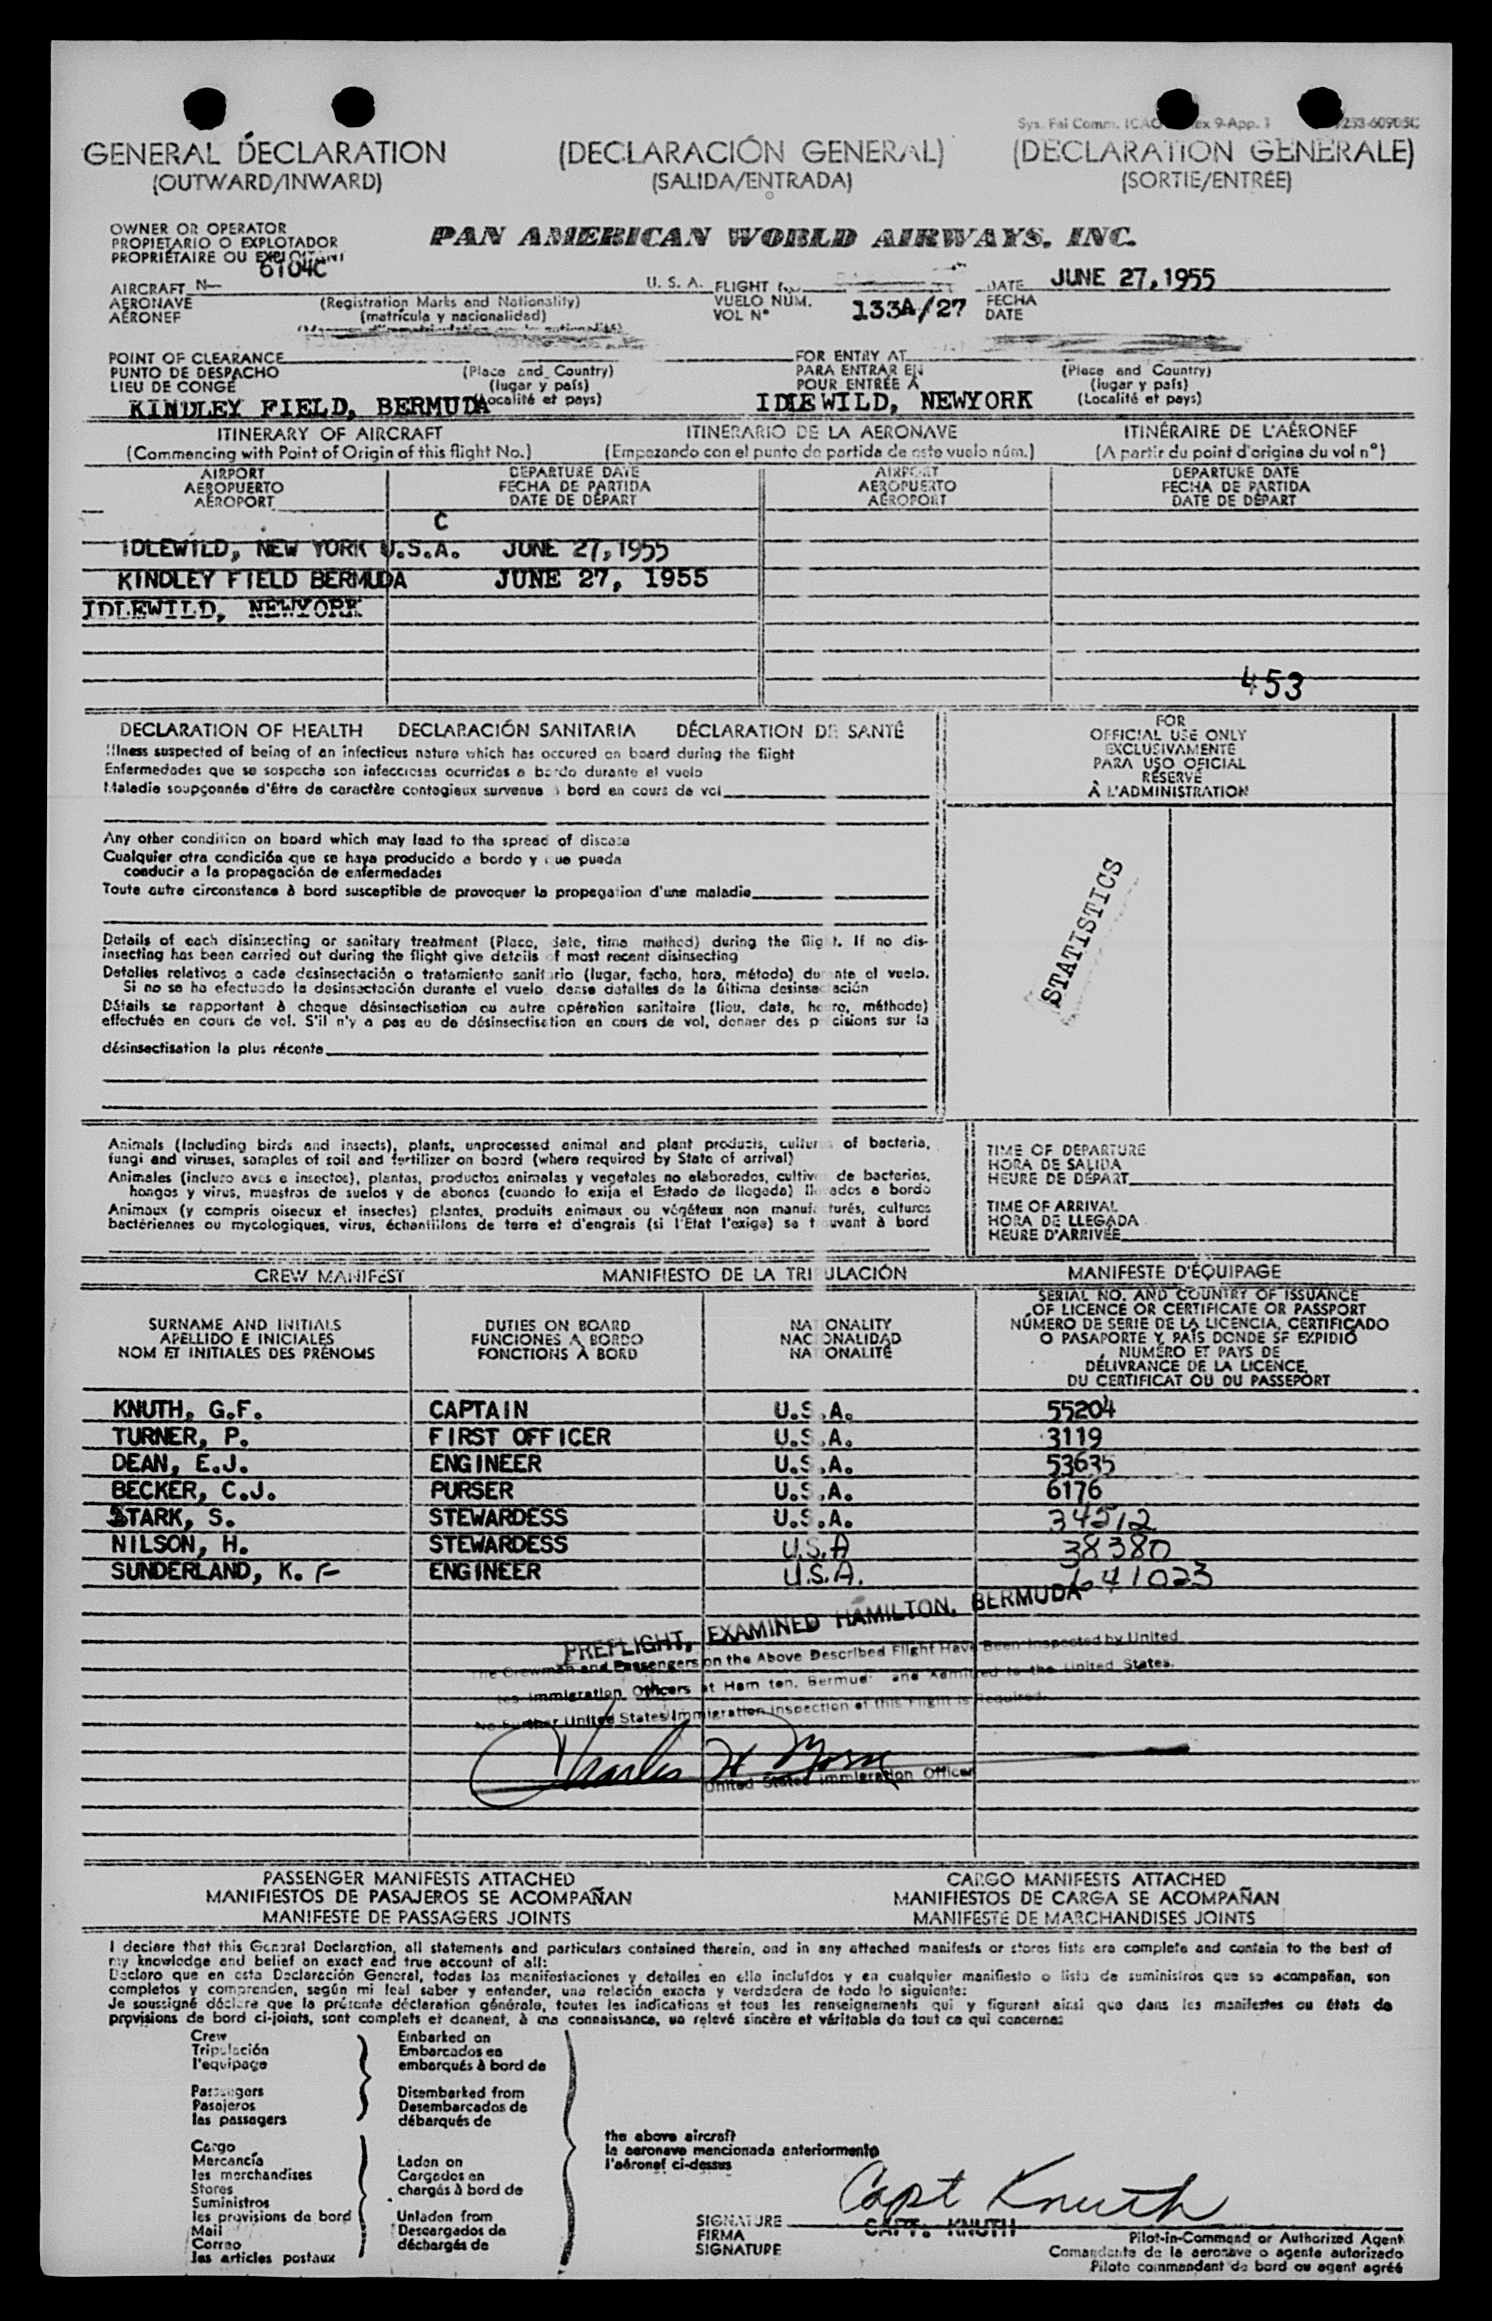 Sys. Fal Comm. ICAO
9-App. 1
GENERAL DECLARATION
(OUTWARD/INWARD)
(DECLARACIÓN GENERAL)
(SALIDA/ENTRADA)
(DECLARATION GENERALE)
(SORTIE/ENTRÉE)
OWNER OR OPERATOR
PROPIETARIO O EXPLOTADOR
PROPRIÉTAIRE OU EXPLOITANT
PAN AMERICAN WORLD AIRWAYS, INC.
6104C
AIRCRAFT N-
AERONAVE
AÉRONEF
(Registration Marks and Nationality)
(matrícula y nacionalidad)
U. S. A.
FLIGHT No.
VUELO NÚM.
VOL N°
133A/27
DATE
FECHA
DATE
JUNE 27,1955
POINT OF CLEARANCE
PUNTO DE DESPACHO
LIEU DE CONGÉ
(Place and Country)
(lugar y país)
(Localité et pays)
KINDLEY FIELD, BERMUDA
FOR ENTRY AT
PARA ENTRAR EN
POUR ENTRÉE À
(Place and Country)
(lugar y país)
(Localité et pays)
IDLEWILD, NEWYORK
ITINERARY OF AIRCRAFT
(Commencing with Point of Origin of this flight No.)
ITINERARIO DE LA AERONAVE
(Empezando con el punto de partida de este vuelo núm.)
ITINÉRAIRE DE L'AÉRONEF
(A partir du point d'origine du vol n°)
AIRPORT
AEROPUERTO
AÉROPORT
DEPARTURE DATE
FECHA DE PARTIDA
DATE DE DÉPART
AIRPORT
AEROPUERTO
AÉROPORT
DEPARTURE DATE
FECHA DE PARTIDA
DATE DE DÉPART
C
IDLEWILD, NEW YORK U.S.A. JUNE 27,1955
KINDLEY FIELD BERMUDA JUNE 27, 1955
IDLEWILD, NEWYORK
453
DECLARATION OF HEALTH DECLARACIÓN SANITARIA DÉCLARATION DE SANTÉ
Illness suspected of being of an infectious nature which has occured on board during the flight
Enfermedades que se sospecha son infecciosas ocurridas a bordo durante el vuelo
Maladie soupçonnée d'être de caractère contagieux survenue à bord en cours de vol
Any other condition on board which may lead to the spread of disease
Cualquier otra condición que se haya producido a bordo y que pueda
conducir a la propagación de enfermedades
Toute autre circonstance à bord susceptible de provoquer la propagation d'une maladie
Details of each disinsecting or sanitary treatment (Place, date, time method) during the flight. If no dis-
insecting has been carried out during the flight give details of most recent disinsecting
Detalles relativos a cada desinsectación o tratamiento sanitario (lugar, fecha, hora, método) durante el vuelo.
Si no se ha efectuado la desinsectación durante el vuelo dense detalles de la última desinsectación
Détails se rapportant à chaque désinsectisation ou autre opération sanitaire (lieu, date, heure, méthode)
effectuée en cours de vol. S'il n'y a pas eu de désinsectisation en cours de vol, donner des précisions sur la
désinsectisation la plus récente
FOR
OFFICIAL USE ONLY
EXCLUSIVAMENTE
PARA USO OFICIAL
RÉSERVÉ
À L'ADMINISTRATION
STATISTICS
Animals (Including birds and insects), plants, unprocessed animal and plant products, cultures of bacteria,
fungi and viruses, samples of soil and fertilizer on board (where required by State of arrival)
Animales (incluso aves e insectos), plantas, productos animales y vegetales no elaborados, cultivos de bacterias,
hongos y virus, muestras de suelos y de abonos (cuando lo exija el Estado de llegada) llevados a bordo
Animaux (y compris oiseaux et insectes) plantes, produits animaux ou végétaux non manufacturés, cultures
bactériennes ou mycologiques, virus, échantillons de terre et d'engrais (si l'Etat l'exige) se trouvant à bord
TIME OF DEPARTURE
HORA DE SALIDA
HEURE DE DÉPART
TIME OF ARRIVAL
HORA DE LLEGADA
HEURE D'ARRIVÉE
CREW MANIFEST
MANIFIESTO DE LA TRIPULACIÓN
MANIFESTE D'ÉQUIPAGE
SURNAME AND INITIALS
APELLIDO E INICIALES
NOM ET INITIALES DES PRÉNOMS
DUTIES ON BOARD
FUNCIONES A BORDO
FONCTIONS À BORD
NATIONALITY
NACIONALIDAD
NATIONALITÉ
SERIAL NO. AND COUNTRY OF ISSUANCE
OF LICENCE OR CERTIFICATE OR PASSPORT
NÚMERO DE SERIE DE LA LICENCIA, CERTIFICADO
O PASAPORTE Y PAÍS DONDE SE EXPIDIÓ
NUMÉRO ET PAYS DE
DÉLIVRANCE DE LA LICENCE,
DU CERTIFICAT OU DU PASSEPORT
KNUTH, G.F. CAPTAIN U.S.A. 55204
TURNER, P. FIRST OFFICER U.S.A. 3119
DEAN, E.J. ENGINEER U.S.A. 53635
BECKER, C.J. PURSER U.S.A. 6176
STARK, S. STEWARDESS U.S.A. 34512
NILSON, H. STEWARDESS U.S.A 38380
SUNDERLAND, K. F ENGINEER U.S.A. 641023
PREFLIGHT, EXAMINED HAMILTON, BERMUDA
The Crewman and Passengers on the Above Described Flight Have Been Inspected by United
tes Immigration Officers at Ham ton, Bermud and Admitted to the United States.
No Further United States Immigration Inspection of this Flight is Required.
Charles H
United States Immigration Officer
PASSENGER MANIFESTS ATTACHED
MANIFIESTOS DE PASAJEROS SE ACOMPAÑAN
MANIFESTE DE PASSAGERS JOINTS
CARGO MANIFESTS ATTACHED
MANIFIESTOS DE CARGA SE ACOMPAÑAN
MANIFESTE DE MARCHANDISES JOINTS
I declare that this General Declaration, all statements and particulars contained therein, and in any attached manifests or stores lists are complete and contain to the best of
my knowledge and belief an exact end true account of all:
Declaro que en esta Declaración General, todas las manifestaciones y detalles en ella incluídos y en cualquier manifiesto o lista de suministros que se acompañan, son
completos y comprenden, según mi leal saber y entender, una relación exacta y verdadera de todo lo siguiente:
Je soussigné déclare que la présente déclaration générale, toutes les indications et tous les renseignements qui y figurent ainsi que dans les manifestes ou états de
provisions de bord ci-joints, sont complets et donnent, à ma connaissance, un relevé sincère et véritable de tout ce qui concerne:
Crew
Tripulación
l'equipage
Passengers
Pasajeros
les passagers
Cargo
Mercancía
les marchandises
Stores
Suministros
les provisions de bord
Mail
Correo
les articles postaux
Embarked on
Embarcados en
embarqués à bord de
Disembarked from
Desembarcados de
débarqués de
Laden on
Cargados en
chargés à bord de
Unladen from
Descargados de
déchargés de
the above aircraft
la aeronave mencionada anteriormente
l'aéronef ci-dessus
Capt Knuth
SIGNATURE
FIRMA
SIGNATURE
CAPT. KNUTH
Pilot-in-Command or Authorized Agent
Comandante de la aeronave o agente autorizado
Pilote commandant de bord ou agent agréé